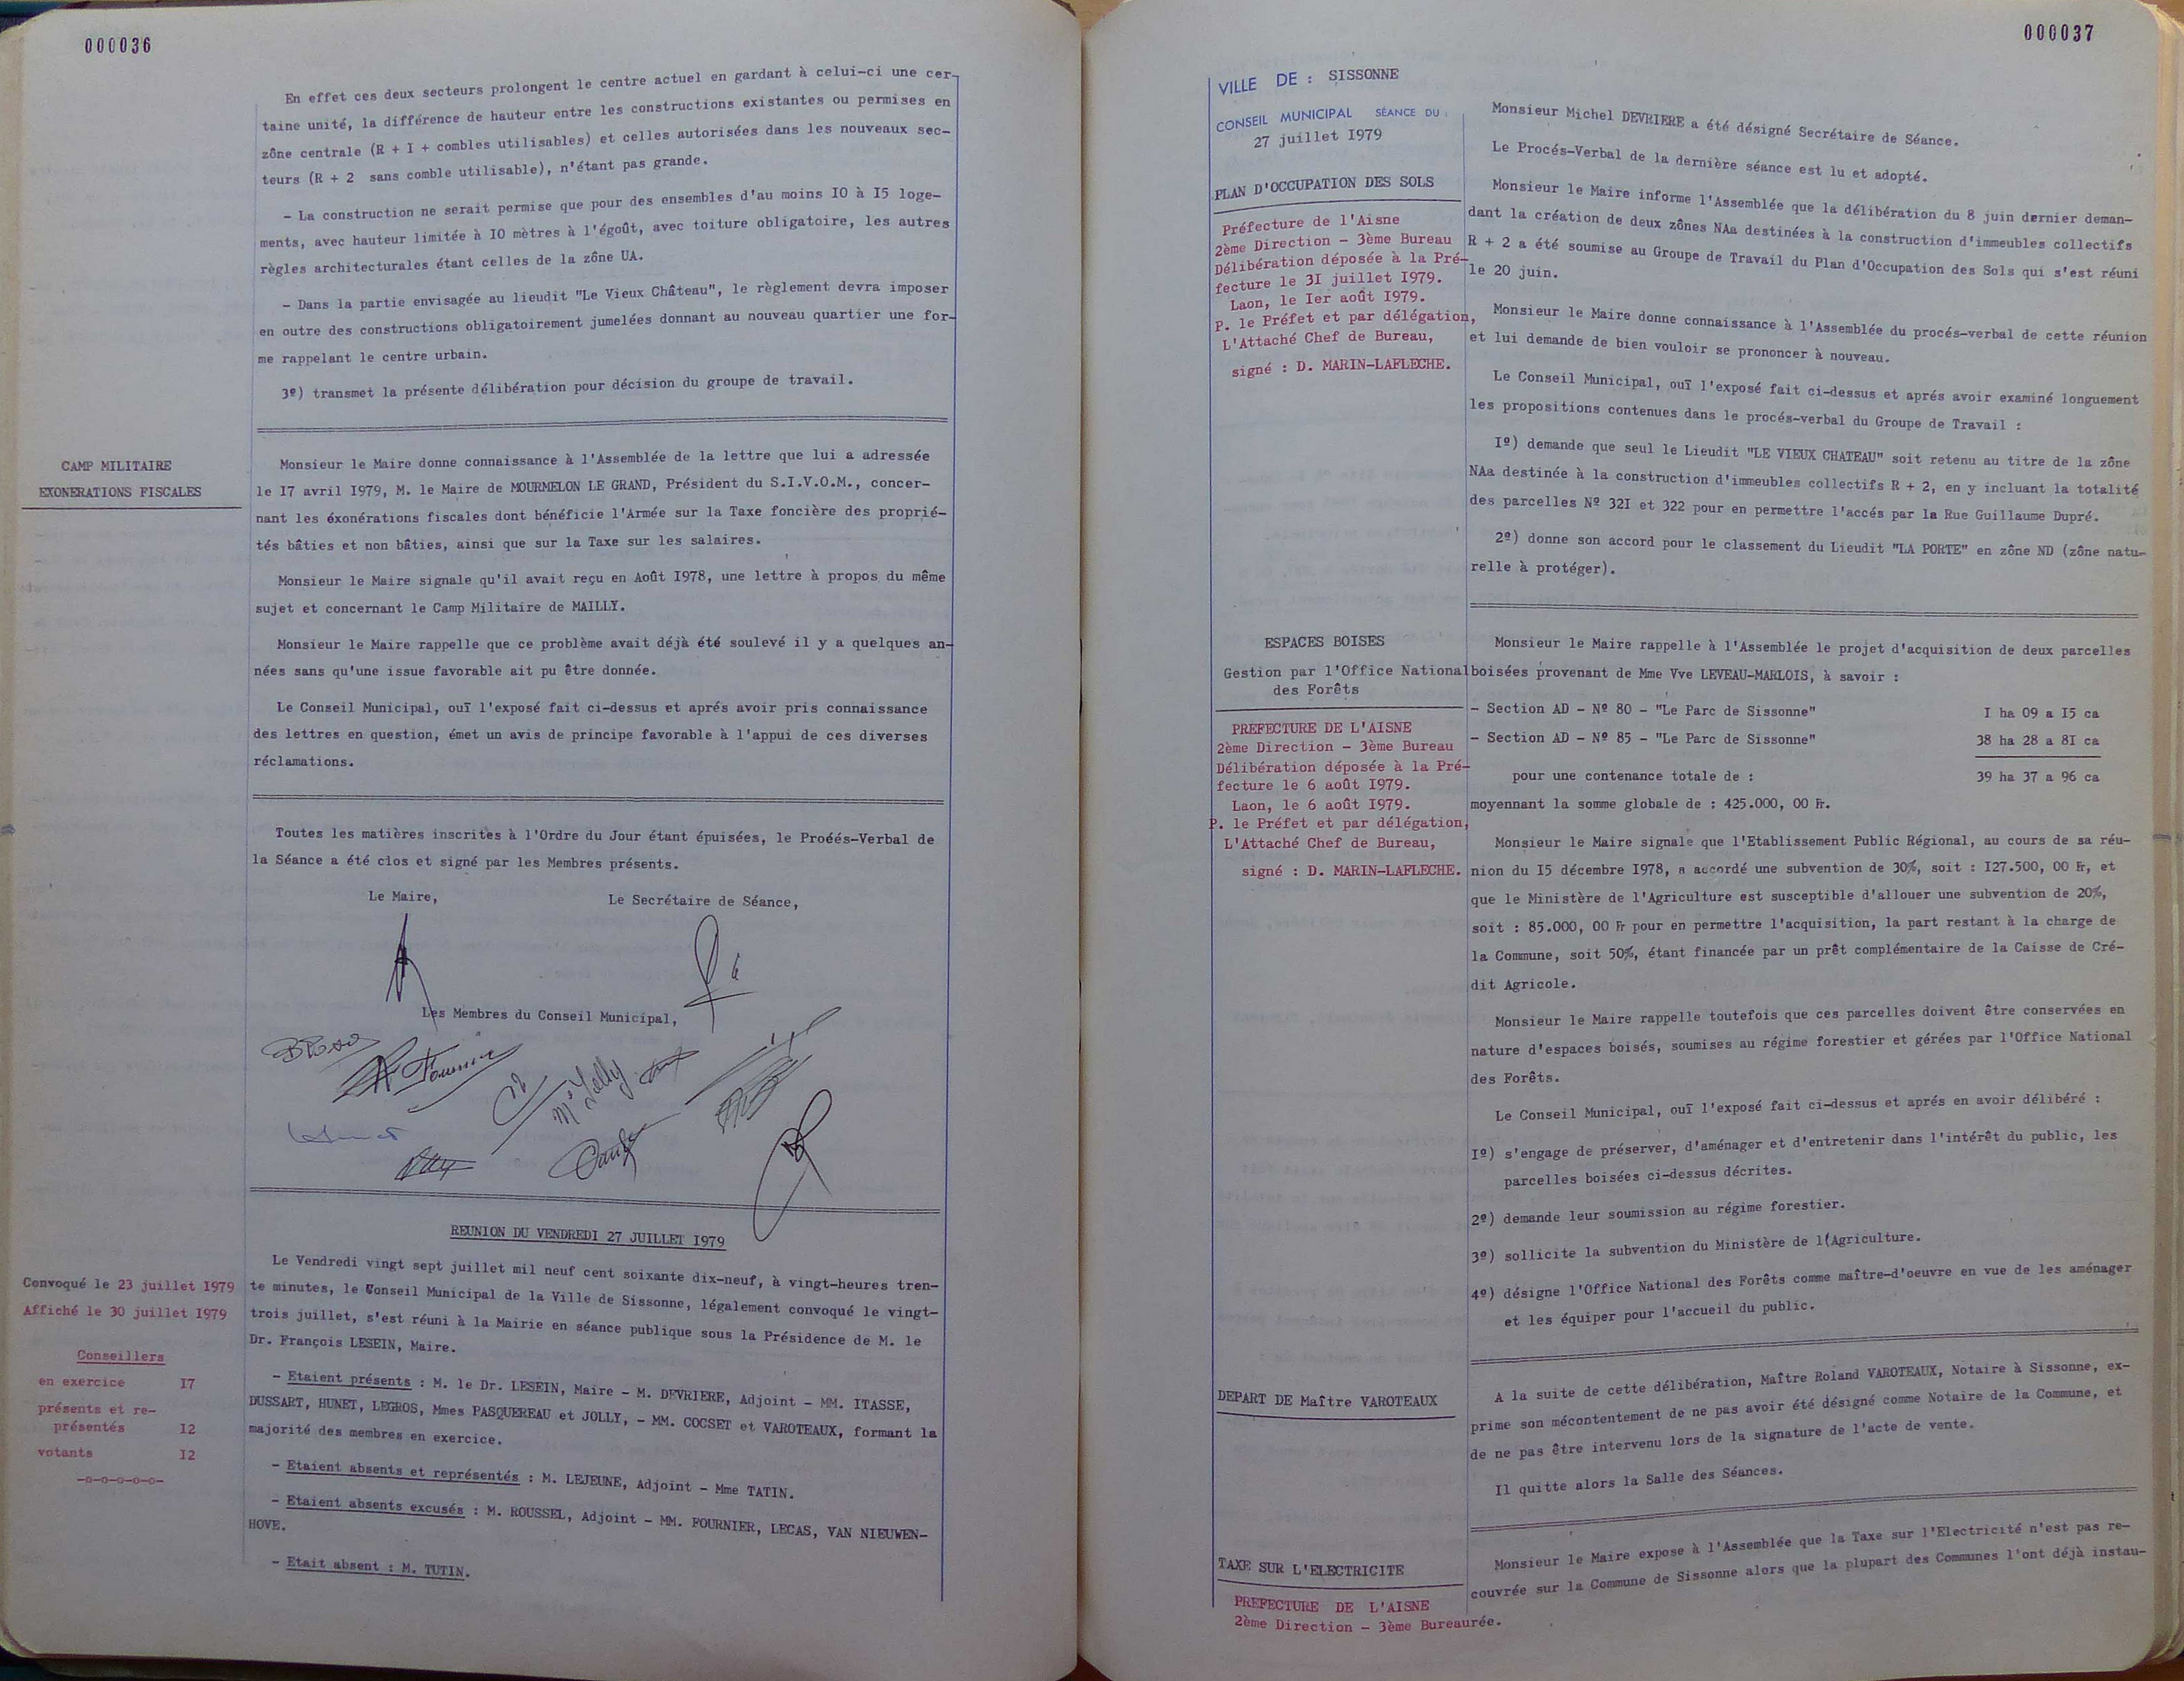 000036
En effet ces deux secteurs prolongent le centre actuel en gardant à celui-ci une cer-
taine unité, la différence de hauteur entre les constructions existantes ou permises en
zône centrale (R + I + combles utilisables) et celles autorisées dans les nouveaux sec-
teurs (R + 2 sans comble utilisable), n'étant pas grande.
- La construction ne serait permise que pour des ensembles d'au moins I0 à I5 loge-
ments, avec hauteur limitée à I0 mètres à l'égoût, avec toiture obligatoire, les autres
règles architecturales étant celles de la zône UA.
- Dans la partie envisagée au lieudit "Le Vieux Château", le règlement devra imposer
en outre des constructions obligatoirement jumelées donnant au nouveau quartier une for-
me rappelant le centre urbain.
3º) transmet la présente délibération pour décision du groupe de travail.
CAMP MILITAIRE
EXONERATIONS FISCALES
Monsieur le Maire donne connaissance à l'Assemblée de la lettre que lui a adressée
le I7 avril I979, M. le Maire de MOURMELON LE GRAND, Président du S.I.V.O.M., concer-
nant les éxonérations fiscales dont bénéficie l'Armée sur la Taxe foncière des proprié-
tés bâties et non bâties, ainsi que sur la Taxe sur les salaires.
Monsieur le Maire signale qu'il avait reçu en Août I978, une lettre à propos du même
sujet et concernant le Camp Militaire de MAILLY.
Monsieur le Maire rappelle que ce problème avait déjà été soulevé il y a quelques an-
nées sans qu'une issue favorable ait pu être donnée.
Le Conseil Municipal, ouï l'exposé fait ci-dessus et aprés avoir pris connaissance
des lettres en question, émet un avis de principe favorable à l'appui de ces diverses
réclamations.
Toutes les matières inscrites à l'Ordre du Jour étant épuisées, le Proéés-Verbal de
la Séance a été clos et signé par les Membres présents.
Le Maire,
Le Secrétaire de Séance,
Les Membres du Conseil Municipal,
Fournier
Me Jolly
REUNION DU VENDREDI 27 JUILLET I979
Convoqué le 23 juillet I979
Affiché le 30 juillet I979
Conseillers
en exercice I7
présents et re-
présentés I2
votants I2
-o-o-o-o-o-
Le Vendredi vingt sept juillet mil neuf cent soixante dix-neuf, à vingt-heures tren-
te minutes, le Conseil Municipal de la Ville de Sissonne, légalement convoqué le vingt-
trois juillet, s'est réuni à la Mairie en séance publique sous la Présidence de M. le
Dr. François LESEIN, Maire.
- Etaient présents : M. le Dr. LESEIN, Maire - M. DEVRIERE, Adjoint - MM. ITASSE,
DUSSART, HUNET, LEGROS, Mmes PASQUEREAU et JOLLY, - MM. COCSET et VAROTEAUX, formant la
majorité des membres en exercice.
- Etaient absents et représentés : M. LEJEUNE, Adjoint - Mme TATIN.
- Etaient absents excusés : M. ROUSSEL, Adjoint - MM. FOURNIER, LECAS, VAN NIEUWEN-
HOVE.
- Etait absent : M. TUTIN.
000037
VILLE DE : SISSONNE
CONSEIL MUNICIPAL SÉANCE DU :
27 juillet I979
PLAN D'OCCUPATION DES SOLS
Préfecture de l'Aisne
2ème Direction - 3ème Bureau
Délibération déposée à la Pré-
fecture le 3I juillet I979.
Laon, le Ier août I979.
P. le Préfet et par délégation,
L'Attaché Chef de Bureau,
signé : D. MARIN-LAFLECHE.
Monsieur Michel DEVRIERE a été désigné Secrétaire de Séance.
Le Procés-Verbal de la dernière séance est lu et adopté.
Monsieur le Maire informe l'Assemblée que la délibération du 8 juin dernier deman-
dant la création de deux zônes NAa destinées à la construction d'immeubles collectifs
R + 2 a été soumise au Groupe de Travail du Plan d'Occupation des Sols qui s'est réuni
le 20 juin.
Monsieur le Maire donne connaissance à l'Assemblée du procés-verbal de cette réunion
et lui demande de bien vouloir se prononcer à nouveau.
Le Conseil Municipal, ouï l'exposé fait ci-dessus et aprés avoir examiné longuement
les propositions contenues dans le procés-verbal du Groupe de Travail :
Iº) demande que seul le Lieudit "LE VIEUX CHATEAU" soit retenu au titre de la zône
NAa destinée à la construction d'immeubles collectifs R + 2, en y incluant la totalité
des parcelles Nº 32I et 322 pour en permettre l'accés par la Rue Guillaume Dupré.
2º) donne son accord pour le classement du Lieudit "LA PORTE" en zône ND (zône natu-
relle à protéger).
ESPACES BOISES
Gestion par l'Office National
des Forêts
PREFECTURE DE L'AISNE
2ème Direction - 3ème Bureau
Délibération déposée à la Pré-
fecture le 6 août I979.
Laon, le 6 août I979.
P. le Préfet et par délégation,
L'Attaché Chef de Bureau,
signé : D. MARIN-LAFLECHE.
Monsieur le Maire rappelle à l'Assemblée le projet d'acquisition de deux parcelles
boisées provenant de Mme Vve LEVEAU-MARLOIS, à savoir :
- Section AD - Nº 80 - "Le Parc de Sissonne" I ha 09 a I5 ca
- Section AD - Nº 85 - "Le Parc de Sissonne" 38 ha 28 a 8I ca
pour une contenance totale de : 39 ha 37 a 96 ca
moyennant la somme globale de : 425.000, 00 Fr.
Monsieur le Maire signale que l'Etablissement Public Régional, au cours de sa réu-
nion du I5 décembre I978, a accordé une subvention de 30%, soit : I27.500, 00 Fr, et
que le Ministère de l'Agriculture est susceptible d'allouer une subvention de 20%,
soit : 85.000, 00 Fr pour en permettre l'acquisition, la part restant à la charge de
la Commune, soit 50%, étant financée par un prêt complémentaire de la Caisse de Cré-
dit Agricole.
Monsieur le Maire rappelle toutefois que ces parcelles doivent être conservées en
nature d'espaces boisés, soumises au régime forestier et gérées par l'Office National
des Forêts.
Le Conseil Municipal, ouï l'exposé fait ci-dessus et aprés en avoir délibéré :
Iº) s'engage de préserver, d'aménager et d'entretenir dans l'intérêt du public, les
parcelles boisées ci-dessus décrites.
2º) demande leur soumission au régime forestier.
3º) sollicite la subvention du Ministère de l(Agriculture.
4º) désigne l'Office National des Forêts comme maître-d'oeuvre en vue de les aménager
et les équiper pour l'accueil du public.
DEPART DE Maître VAROTEAUX
A la suite de cette délibération, Maître Roland VAROTEAUX, Notaire à Sissonne, ex-
prime son mécontentement de ne pas avoir été désigné comme Notaire de la Commune, et
de ne pas être intervenu lors de la signature de l'acte de vente.
Il quitte alors la Salle des Séances.
TAXE SUR L'ELECTRICITE
PREFECTURE DE L'AISNE
2ème Direction - 3ème Bureau
Monsieur le Maire expose à l'Assemblée que la Taxe sur l'Electricité n'est pas re-
couvrée sur la Commune de Sissonne alors que la plupart des Communes l'ont déjà instau-
rée.